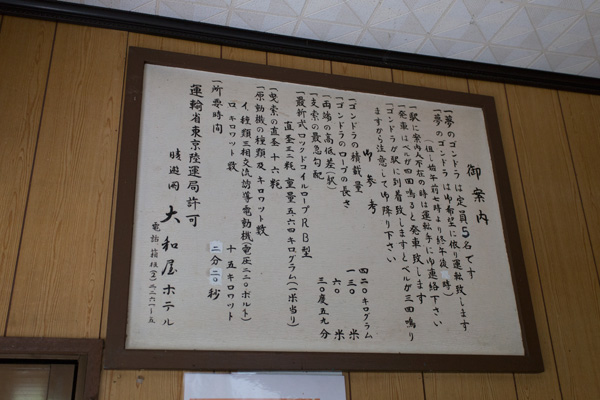 御案内
一夢のゴンドラは定員5名です
一夢のゴンドラは御希望に依り運転致します
(但し始午前七時より終午後 時)
一駅に案内人不在の時は運転手に御連絡下さい
一発車はベルが四回鳴ると発車致します
一ゴンドラが駅に到着致しますとベルが三回鳴り
ますから注意して御降り下さい
御参考
一ゴンドラの積載量 四二〇キログラム
一ゴンドラのロープの長さ 一三〇米
一両端の高低差(駅) 六〇米
一支索の最急勾配 三〇度五九分
一最新式ロックドコイルロープRB型
直径三二粍 重量五六四キログラム(一米当り)
一曳索の直径十六粍
一原動機の種類及キロワット数
イ、種類三相交流誘導電動機(電圧二二〇ボルト)
ロ、キロワット数 十五キロワット
一所要時間 二分二〇秒
運輸省東京陸運局許可
晴遊閣 大和屋ホテル
電話箱根(宮)